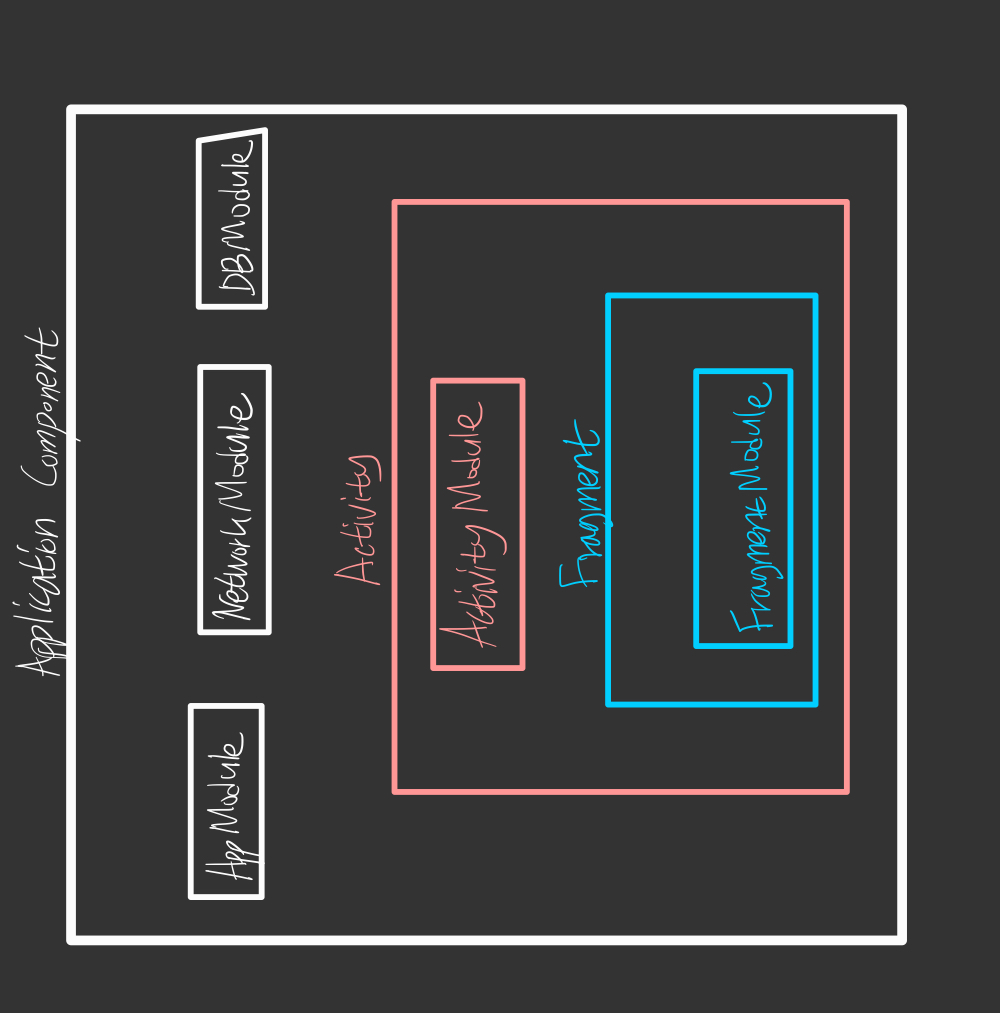 Application Component
AppModule
NetworkModule
DBModule
Activity
Activity Module
Fragment
FragmentModule